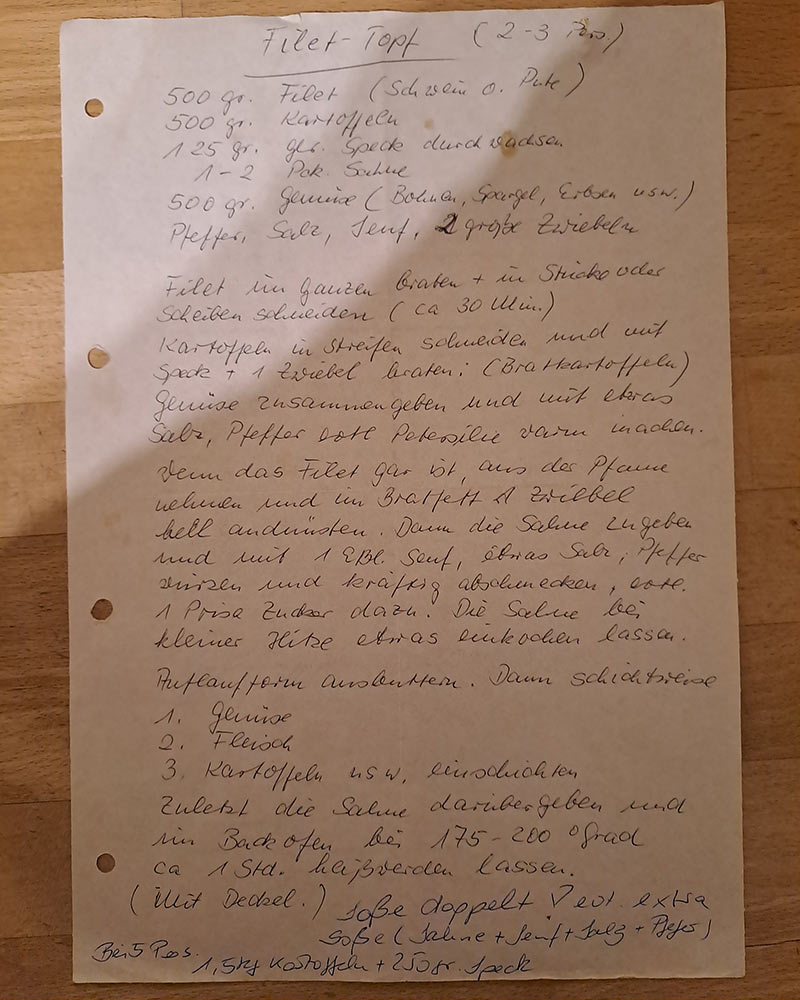 Filet-Topf (2-3 Pers.)
500 gr. Filet (Schwein o. Pute)
500 gr. Kartoffeln
125 gr. ger. Speck durchwachsen
1-2 Pak. Sahne
500 gr. Gemüse (Bohnen, Spargel, Erbsen usw.)
Pfeffer, Salz, Senf, 2 große Zwiebeln
Filet im ganzen braten + in Stücke oder
Scheiben schneiden (ca 30 Min.)
Kartoffeln in Streifen schneiden und mit
Speck + 1 Zwiebel braten: (Bratkartoffeln)
Gemüse zusammengeben und mit etwas
Salz, Pfeffer evtl Petersilie warm machen.
Wenn das Filet gar ist, aus der Pfanne
nehmen und im Bratfett 1 Zwiebel
hell andünsten. Dann die Sahne zugeben
und mit 1 Eßl. Senf, etwas Salz, Pfeffer
würzen und kräftig abschmecken, evtl.
1 Prise Zucker dazu. Die Sahne bei
kleiner Hitze etwas einkochen lassen.
Auflaufform ausbuttern. Dann schichtweise
1. Gemüse
2. Fleisch
3. Kartoffeln usw. einschichten
Zuletzt die Sahne darübergeben und
im Backofen bei 175-200 °Grad
ca 1 Std. heißwerden lassen.
(Mit Deckel.) Soße doppelt evt. extra
Soße (Sahne + Senf + Salz + Pfeffer)
Bei 5 Pers.
1,5kg Kartoffeln + 250gr. Speck